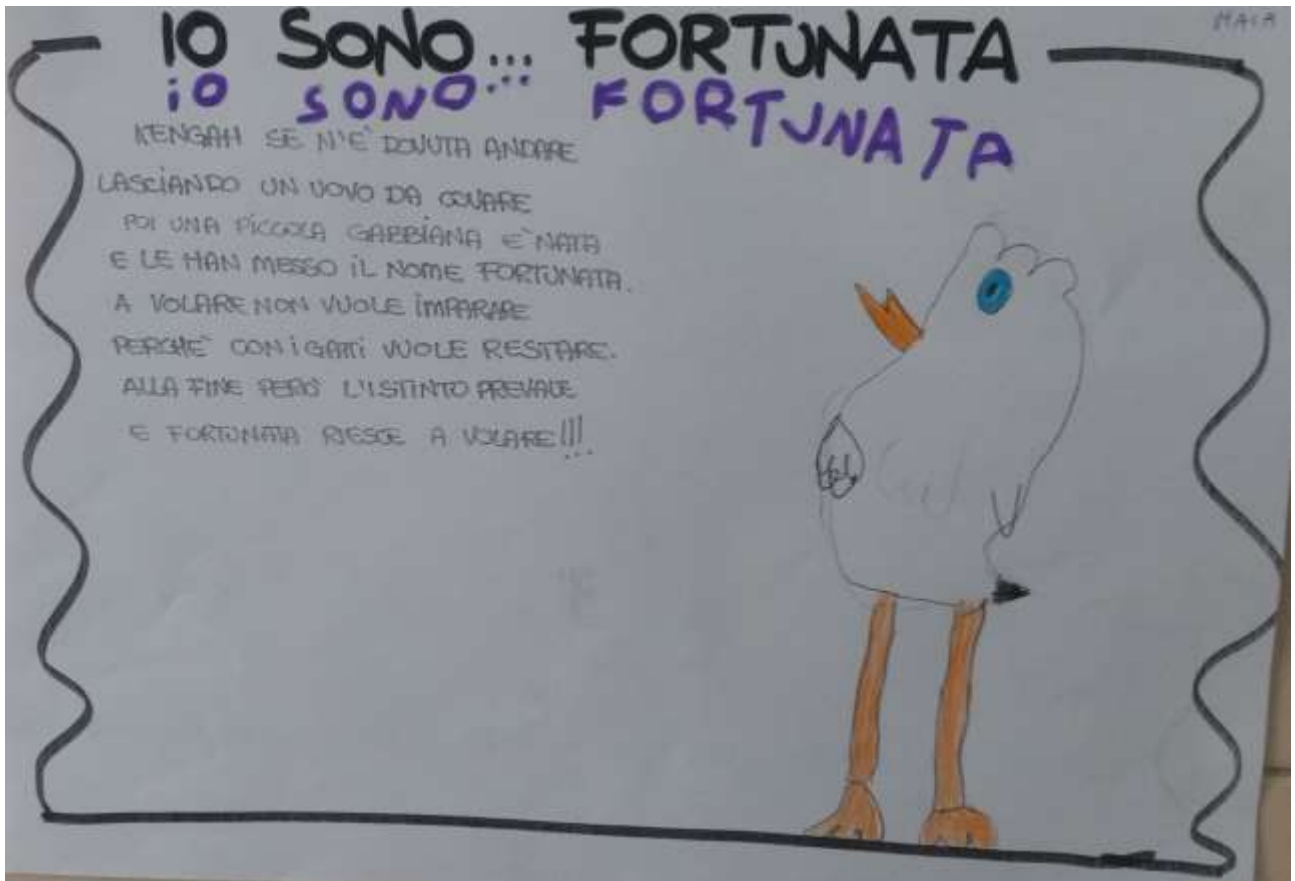 IO SONO... FORTUNATA
iO SONO... FORTUNATA
KENGAH SE N'È DOVUTA ANDARE
LASCIANDO UN UOVO DA COVARE
POI UNA PICCOLA GABBIANA E' NATA
E LE HAN MESSO iL NOME FORTUNATA.
A VOLARE NON VUOLE iMPARARE
PERCHE' CON i GATTI VUOLE RESTARE.
ALLA FINE PERO' L'ISTINTO PREVALE
E FORTUNATA RIESCE A VOLARE!!!